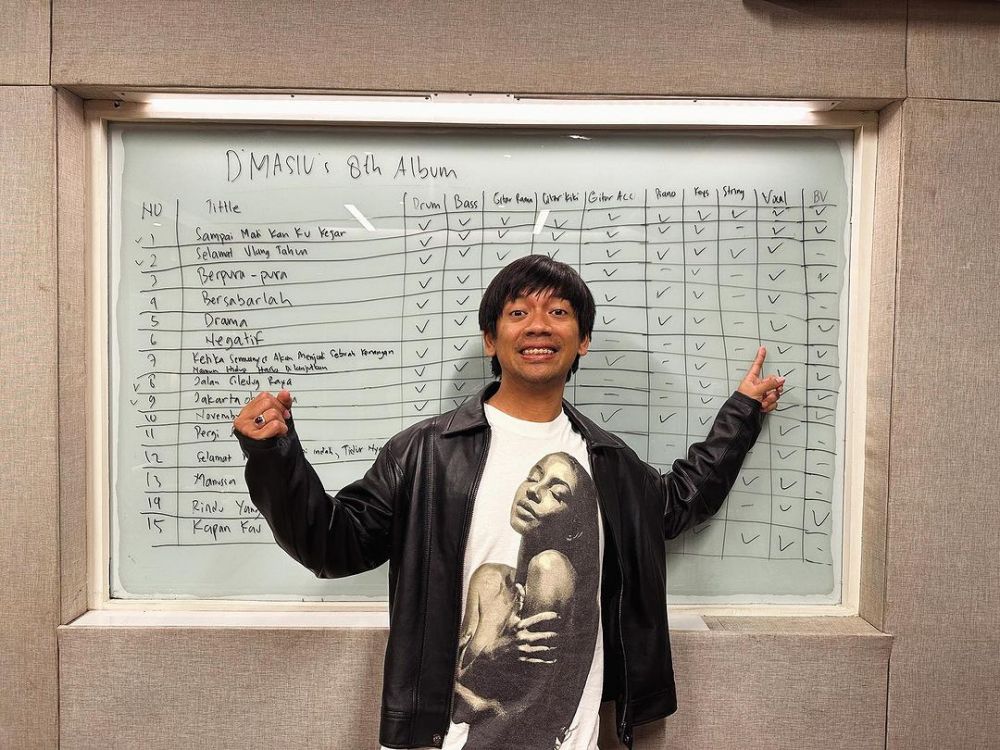 D'MASIV's 8th Album
NO Title Drum Bass Gitar Rama Gitar Kiki Gitar Acc Piano Keys String Vocal BV
1 Sampai Mati Kan Ku Kejar
2 Selamat Ulang Tahun
3 Berpura-pura
4 Bersabarlah
5 Drama
6 Negatif
7 Ketika Semuanya Akan Menjadi Sebuah Kenangan
Namun Hidup Harus Dilanjutkan
8 Jalan Ciledug Raya
9 Jakarta
10 Novemb
11 Pergi
12 Selamat indah, Tidur Ny
13 Manusia
14 Rindu Yang
15 Kapan Kau